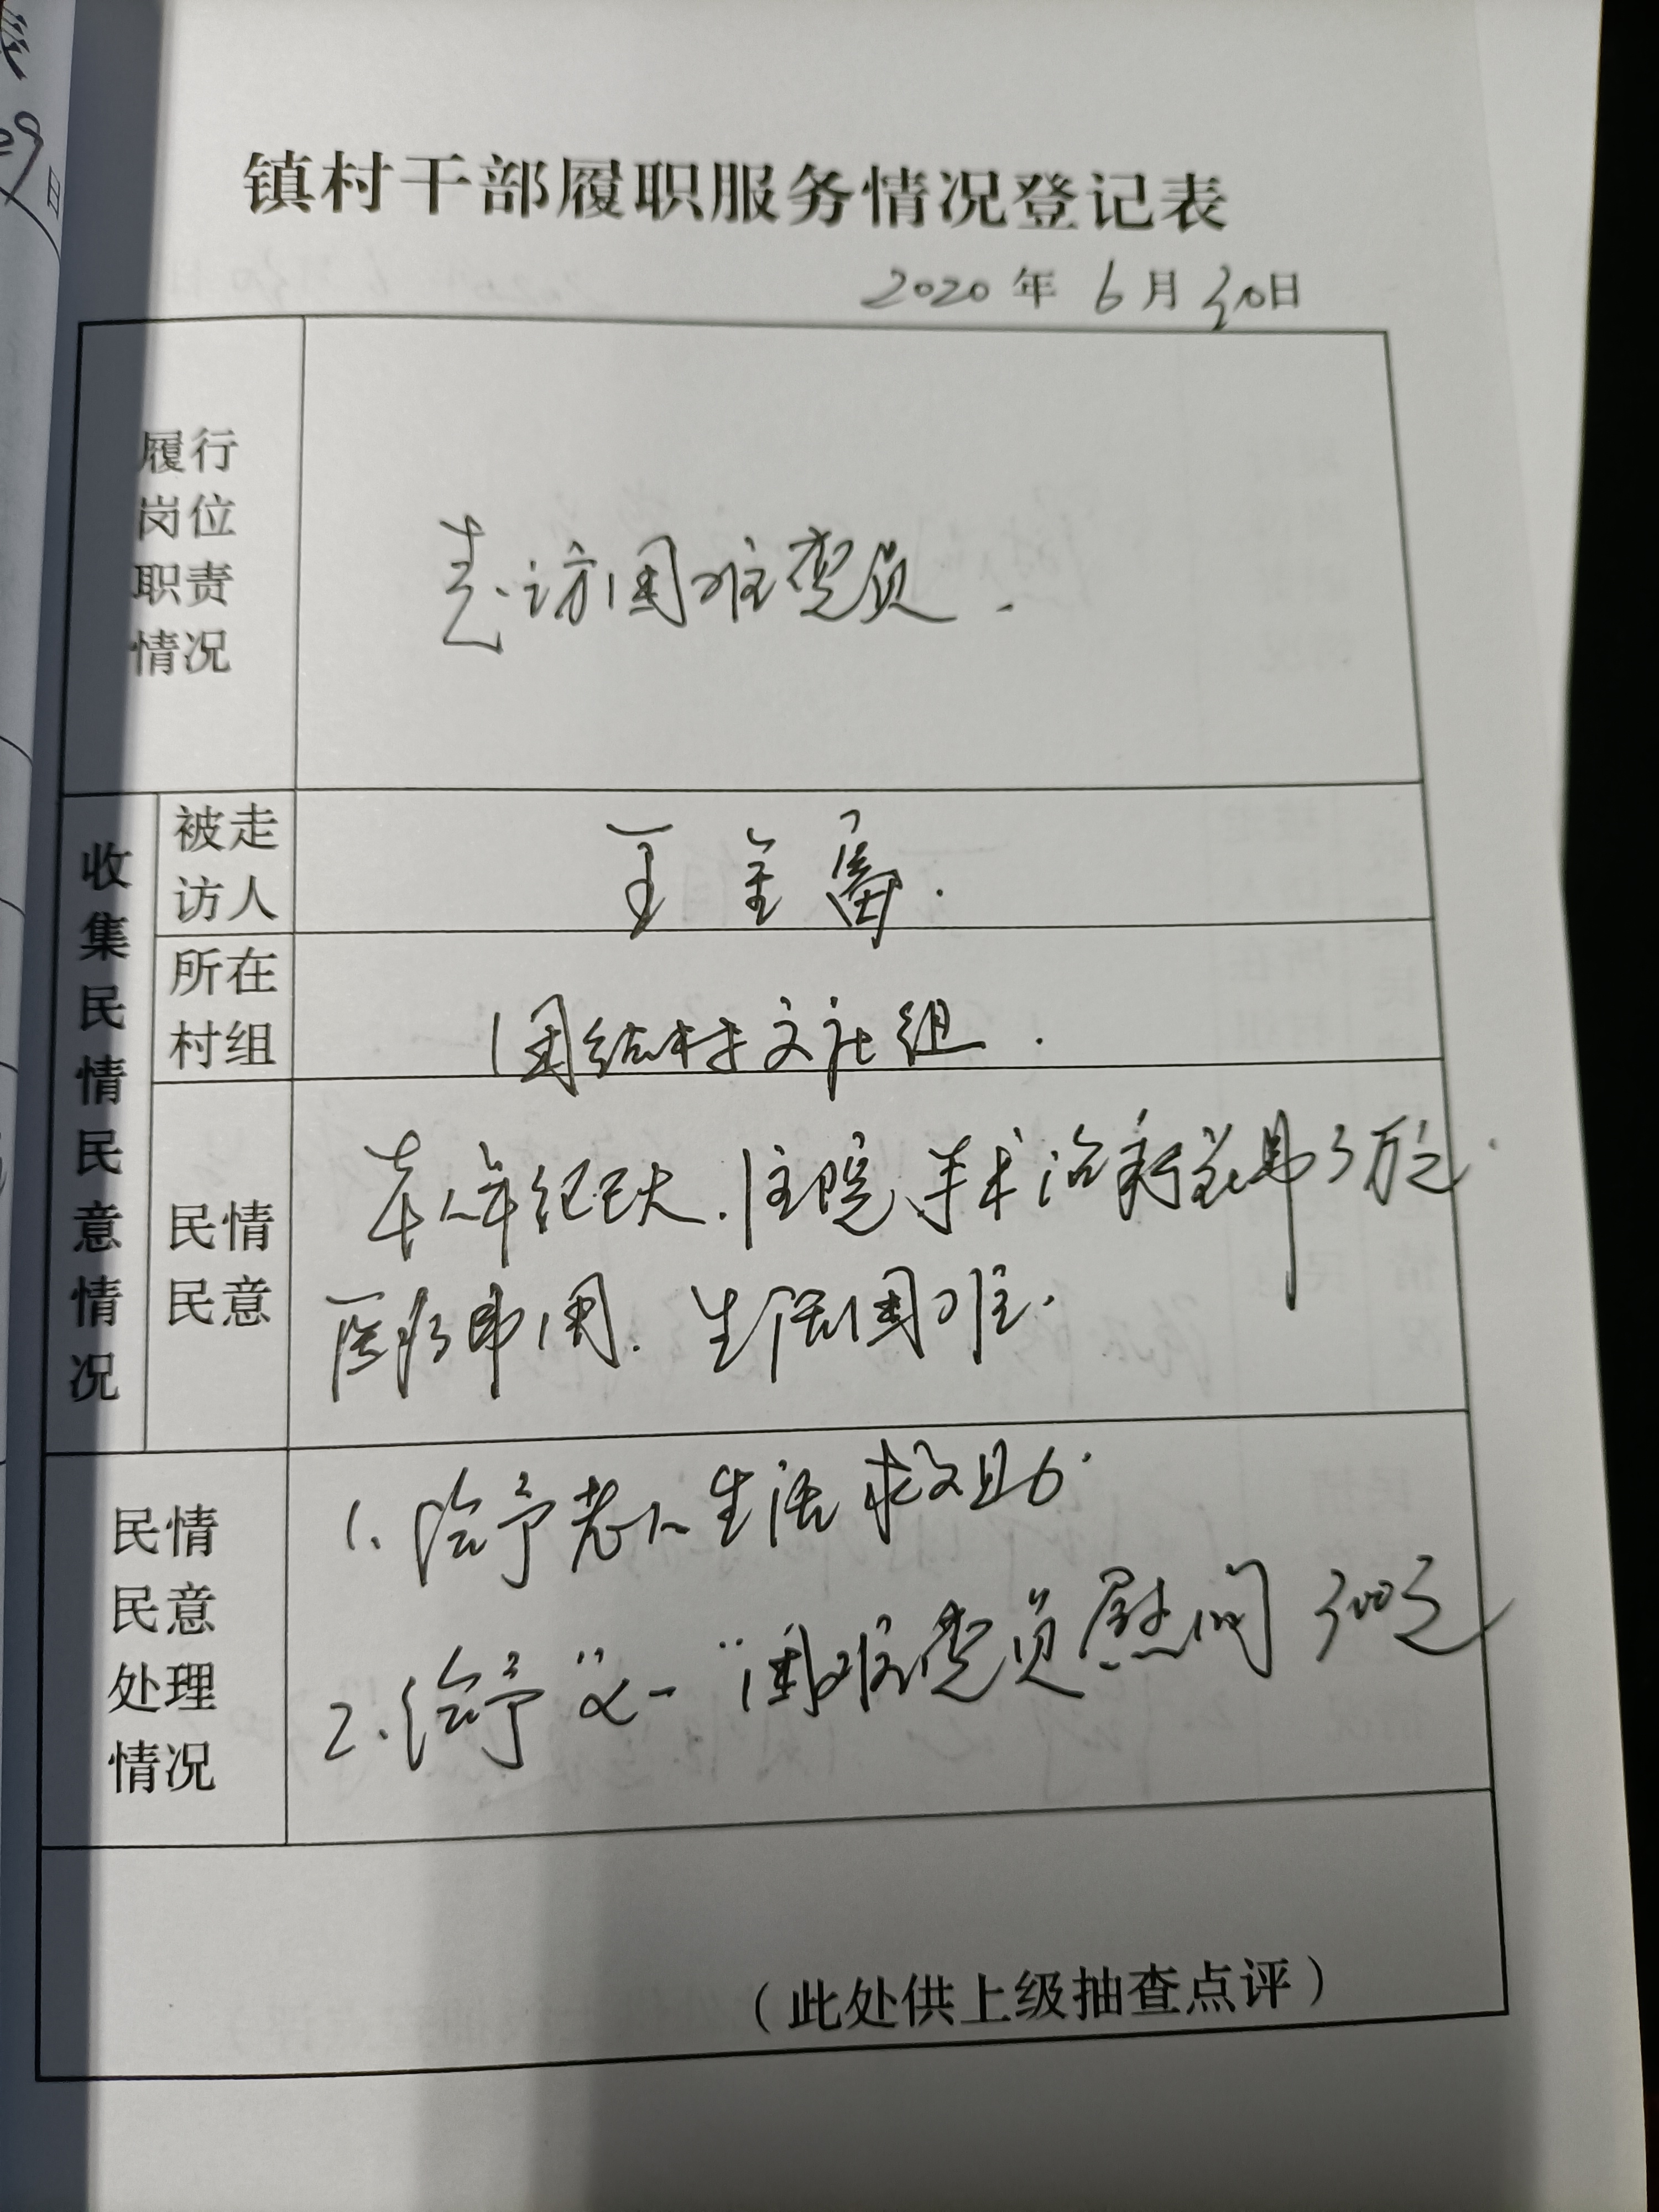 29
日
镇村干部履职服务情况登记表
2020年6月30日
履行
岗位
职责
情况
走访困难党员.
收集民情民意情况
被走
访人
王全富.
所在
村组
团结村文社组.
民情
民意
本人年纪已大.住院手术治疗花费3万元.
医疗费用.生活困难.
民情
民意
处理
情况
1.给予老人生活救助.
2.给予"七一"困难党员慰问300元
(此处供上级抽查点评)